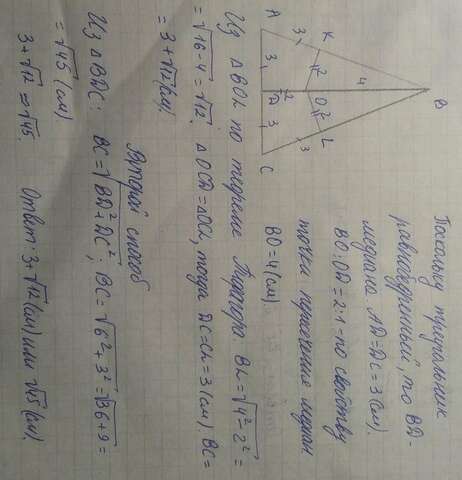 B
4
K
O
L
2
2
3
3
2
A
3
D
3
C
Поскольку треугольник
равнобедренный, то BD-
медиана. AD=DC=3(см).
BO:OD=2:1-по свойству
точки пересечения медиан
BO=4(см)
Из △BOL по теореме Пифагора: BL=√4²-2²=
=√16-4=√12. △OCD=△OCL, тогда DC=CL=3(см). BC=
=3+√12(см).
Второй способ
Из △BDC: BC=√BD²+DC²; BC=√6²+3²=√36+9=
=√45(см).
3+√12≈√45. Ответ: 3+√12(см) или √45(см).